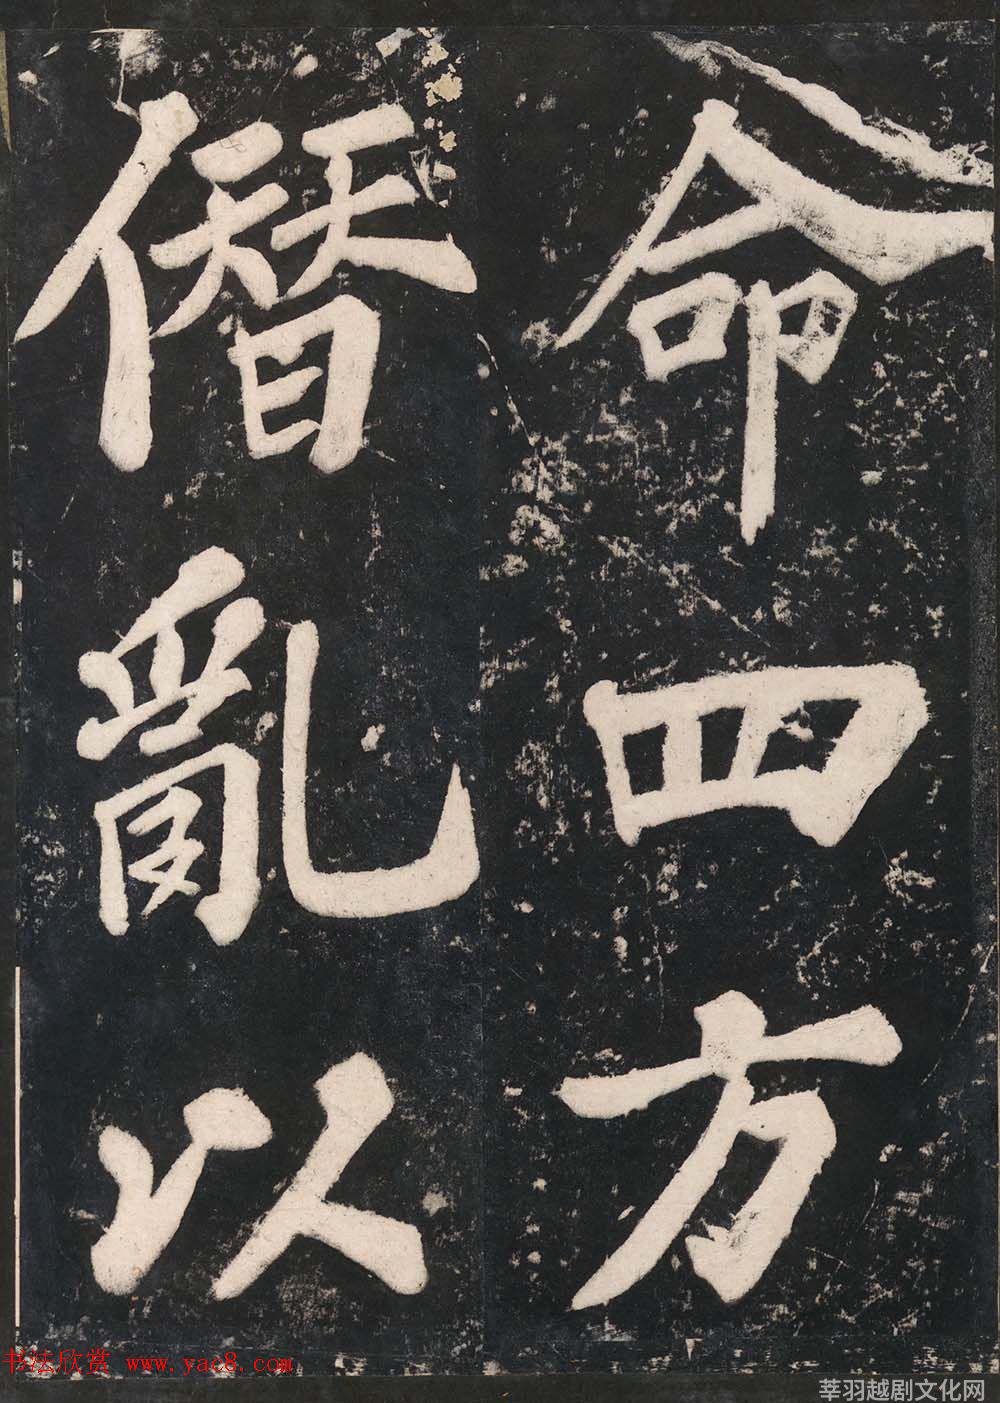 命四方
僭亂以
书法欣赏 www.yac8.com
莘羽越剧文化网